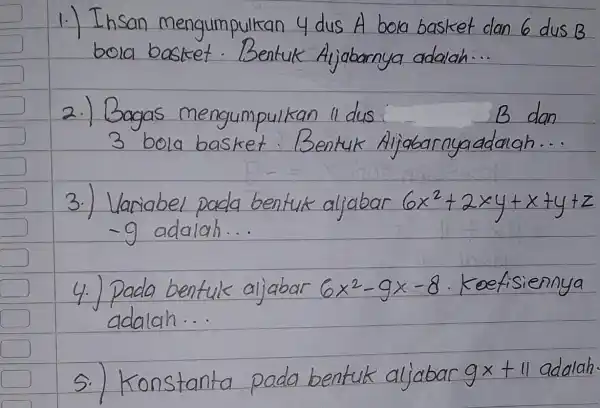 1.) Ihsan mengumpulkan 4 dus A bola basket dan 6 dus B
bola basket. Bentuk Aljabarnya adalah...
2.) Bagas mengumpulkan 11 dus B dan
3 bola basket. Bentuk Aljabarnya adalah...
3.) Variabel pada bentuk aljabar 6x²+2xy+x+y+z
-9 adalah...
4.) Pada bentuk aljabar 6x²-9x-8. Koefisiennya
adalah...
5.) Konstanta pada bentuk aljabar 9x+11 adalah.